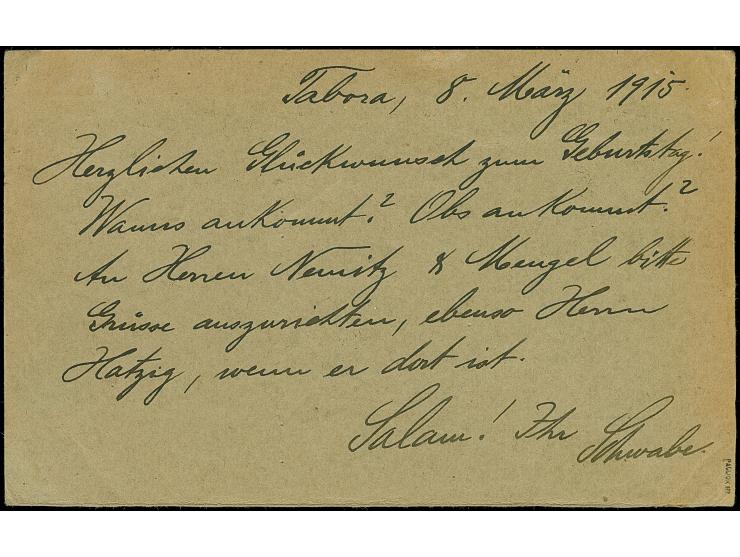 Tabora, 8. März 1915.
Herzlichen Glückwunsch zum Geburtstag!
Wanns ankommt? Obs ankommt?
An Herren Nemitz & Mengel bitte
Grüsse auszurichten, ebenso Herrn
Hatzig, wenn er dort ist.
Salam! Ihr Schwabe.